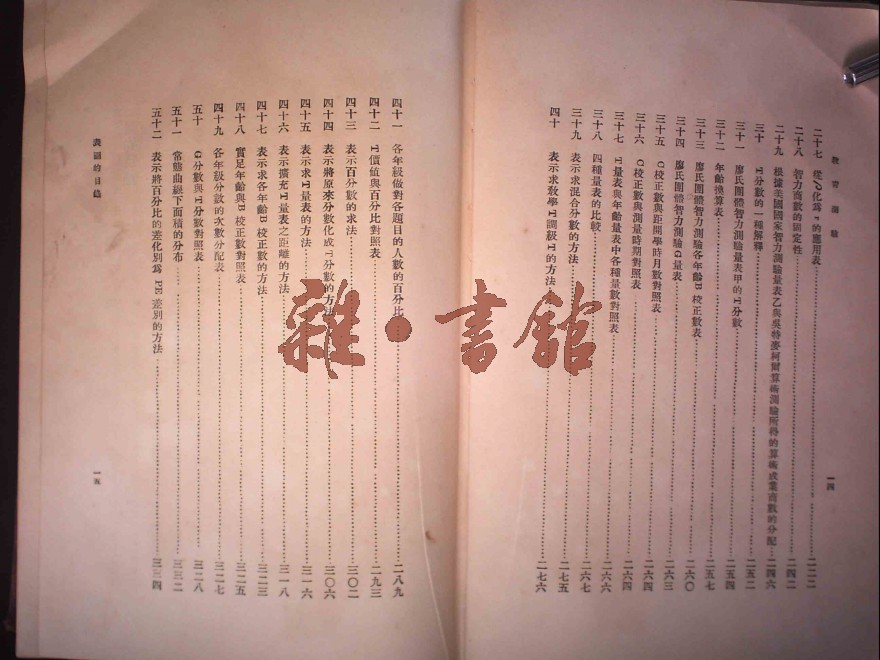 教育測驗
一四
二十七 從ρ化為r的應用表……二二二
二十八 智力商數的固定性……二四二
二十九 根據美國國家智力測驗量表乙與吳特麥柯爾算術測驗所得的算術成業商數的分配…二四六
三十 T分數的一種解釋……二五二
三十一 廖氏團體智力測驗量表甲的T分數……二五四
三十二 年齡換算表……二五七
三十三 廖氏團體智力測驗各年齡B校正數表……二六〇
三十四 廖氏團體智力測驗G量表……二六三
三十五 C校正數與距開學時月數對照表……二六四
三十六 C校正數與測量時期對照表……二六四
三十七 T量表與年齡量表中各種量數對照表……二六六
三十八 四種量表的比較……二六七
三十九 表示求混合分數的方法……二七五
四十 表示求教學T調級T的方法……二七六
四十一 各年級做對各題目的人數的百分比……二八九
四十二 T價值與百分比對照表……二九三
四十三 表示百分數的求法……三〇二
四十四 表示將原來分數化成T分數的方法……三〇六
四十五 表示求T量表的方法……三一六
四十六 表示擴充T量表之距離的方法……三一八
四十七 表示求各年齡B校正數的方法……三二三
四十八 實足年齡與B校正數對照表……三二五
四十九 各年級分數的次數分配表……三二七
五十 G分數與T分數對照表……三二八
五十一 常態曲線下面積的分布……三三二
五十二 表示將百分比的差化別為PE差別的方法……三三四
表圖的目錄
一五
雜·書館